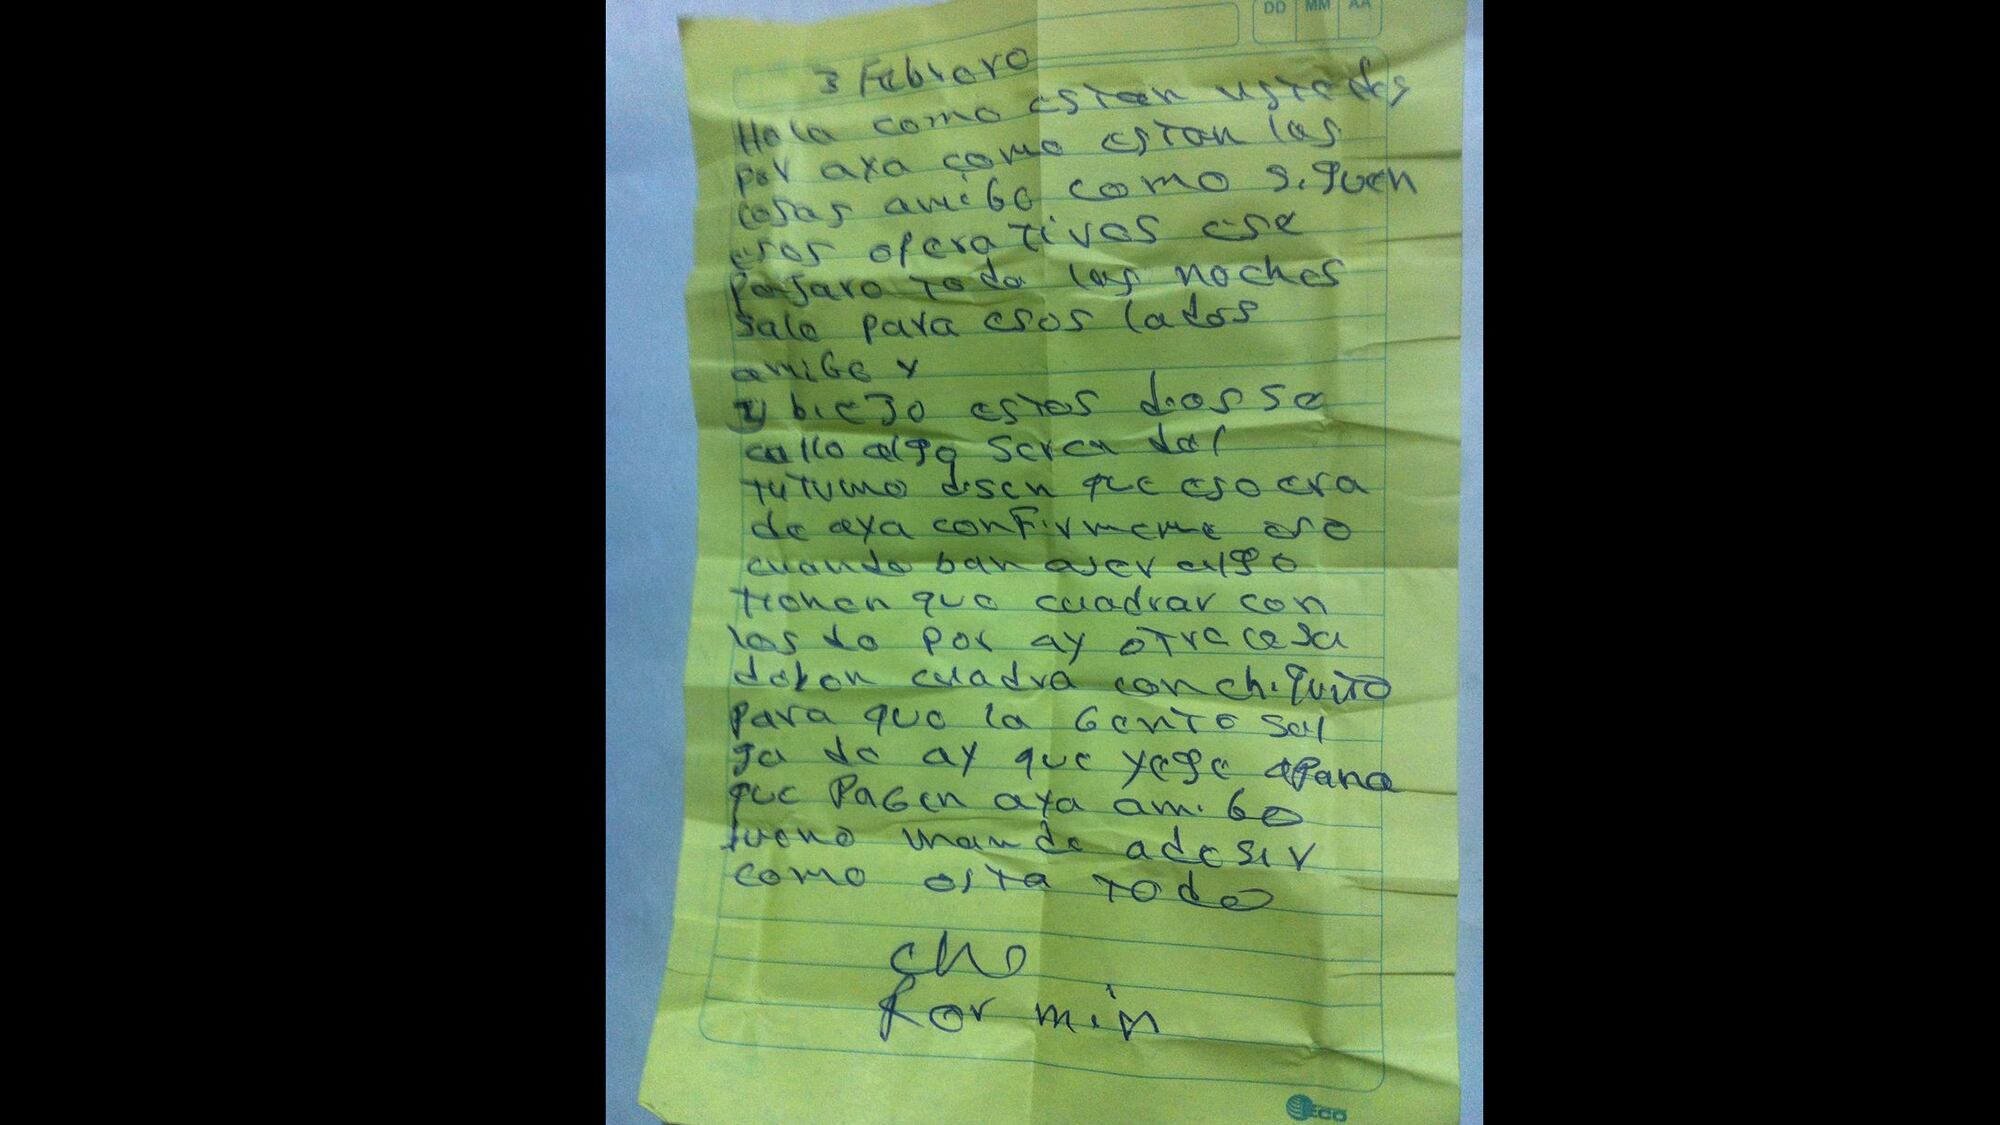 DD MM AA
3 Febrero
Hola como estan ustedes
por axa como estan las
cosas amiGo como siguen
esos operativos ese
Pajaro todo las noches
sale para esos lados
amiGo y
bieJo estos dias se
callo algo serca del
tutumo disen que eso era
de axa confirmeme eso
cuando ban aser algo
tienen que cuadrar con
los de por ay otra cosa
deben cuadra con chiquito
para que la Gente sal
ga de ay que yege apana
que PaGen axa amiGo
bueno mande adesir
como esta todo
cho
Kor min
ECO